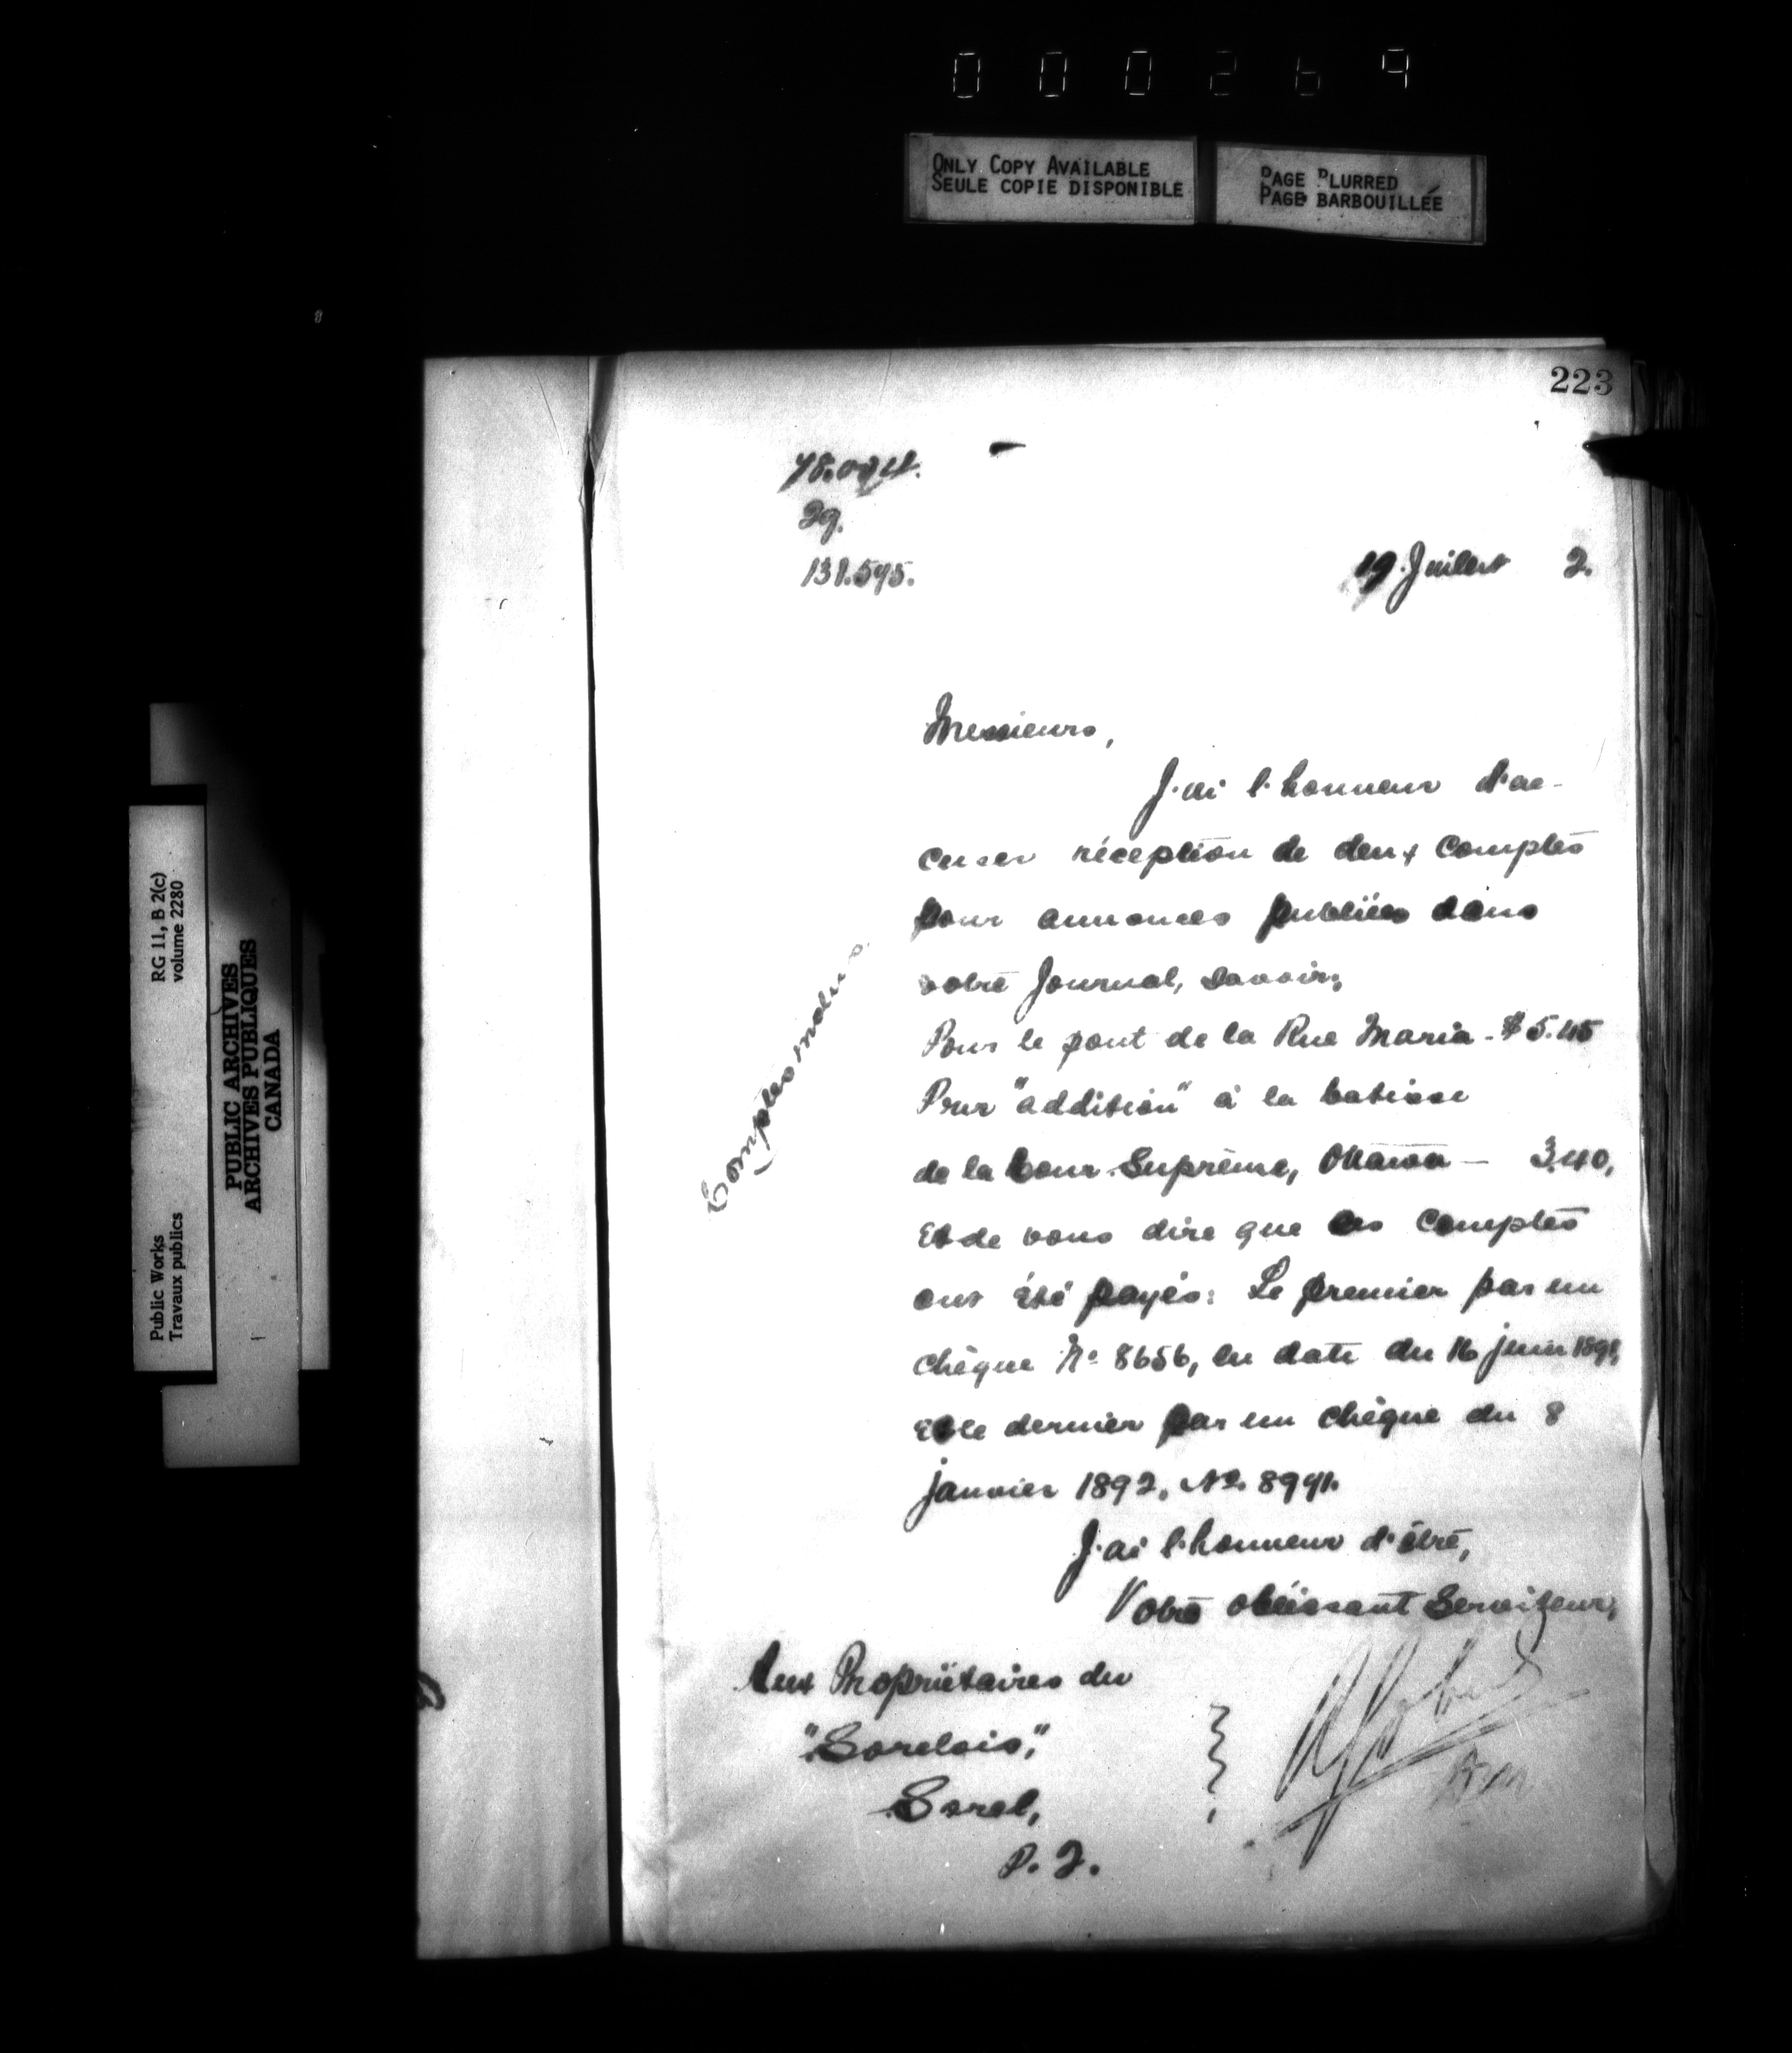 000269
ONLY COPY AVAILABLE
SEULE COPIE DISPONIBLE
PAGE BLURRED
PAGE BARBOUILLÉE
223
29.
131.595.
19 Juillet 2.
Messieurs,
J'ai l'honneur d'ac-
cuser réception de deux Comptes
pour annonces publiées dans
votre Journal, Savoir;
Pour le pont de la Rue Maria - $5.45
Pour "addition" à la batisse
de la Cour Suprême, Ottawa - 3.40,
Et de vous dire que ces Comptes
ont été payés: Le premier par un
chèque No 8656, en date du 16 juin 1891,
Et le dernier par un chèque du 8
janvier 1892, No. 8991.
J'ai l'honneur d'être,
Votre obéissant Serviteur,
Aux Propriétaires du
"Sorelois,"
Sorel,
P. Q.
Comptes rendus
RG 11, B 2(c)
volume 2280
Public Works
Travaux publics
PUBLIC ARCHIVES
ARCHIVES PUBLIQUES
CANADA